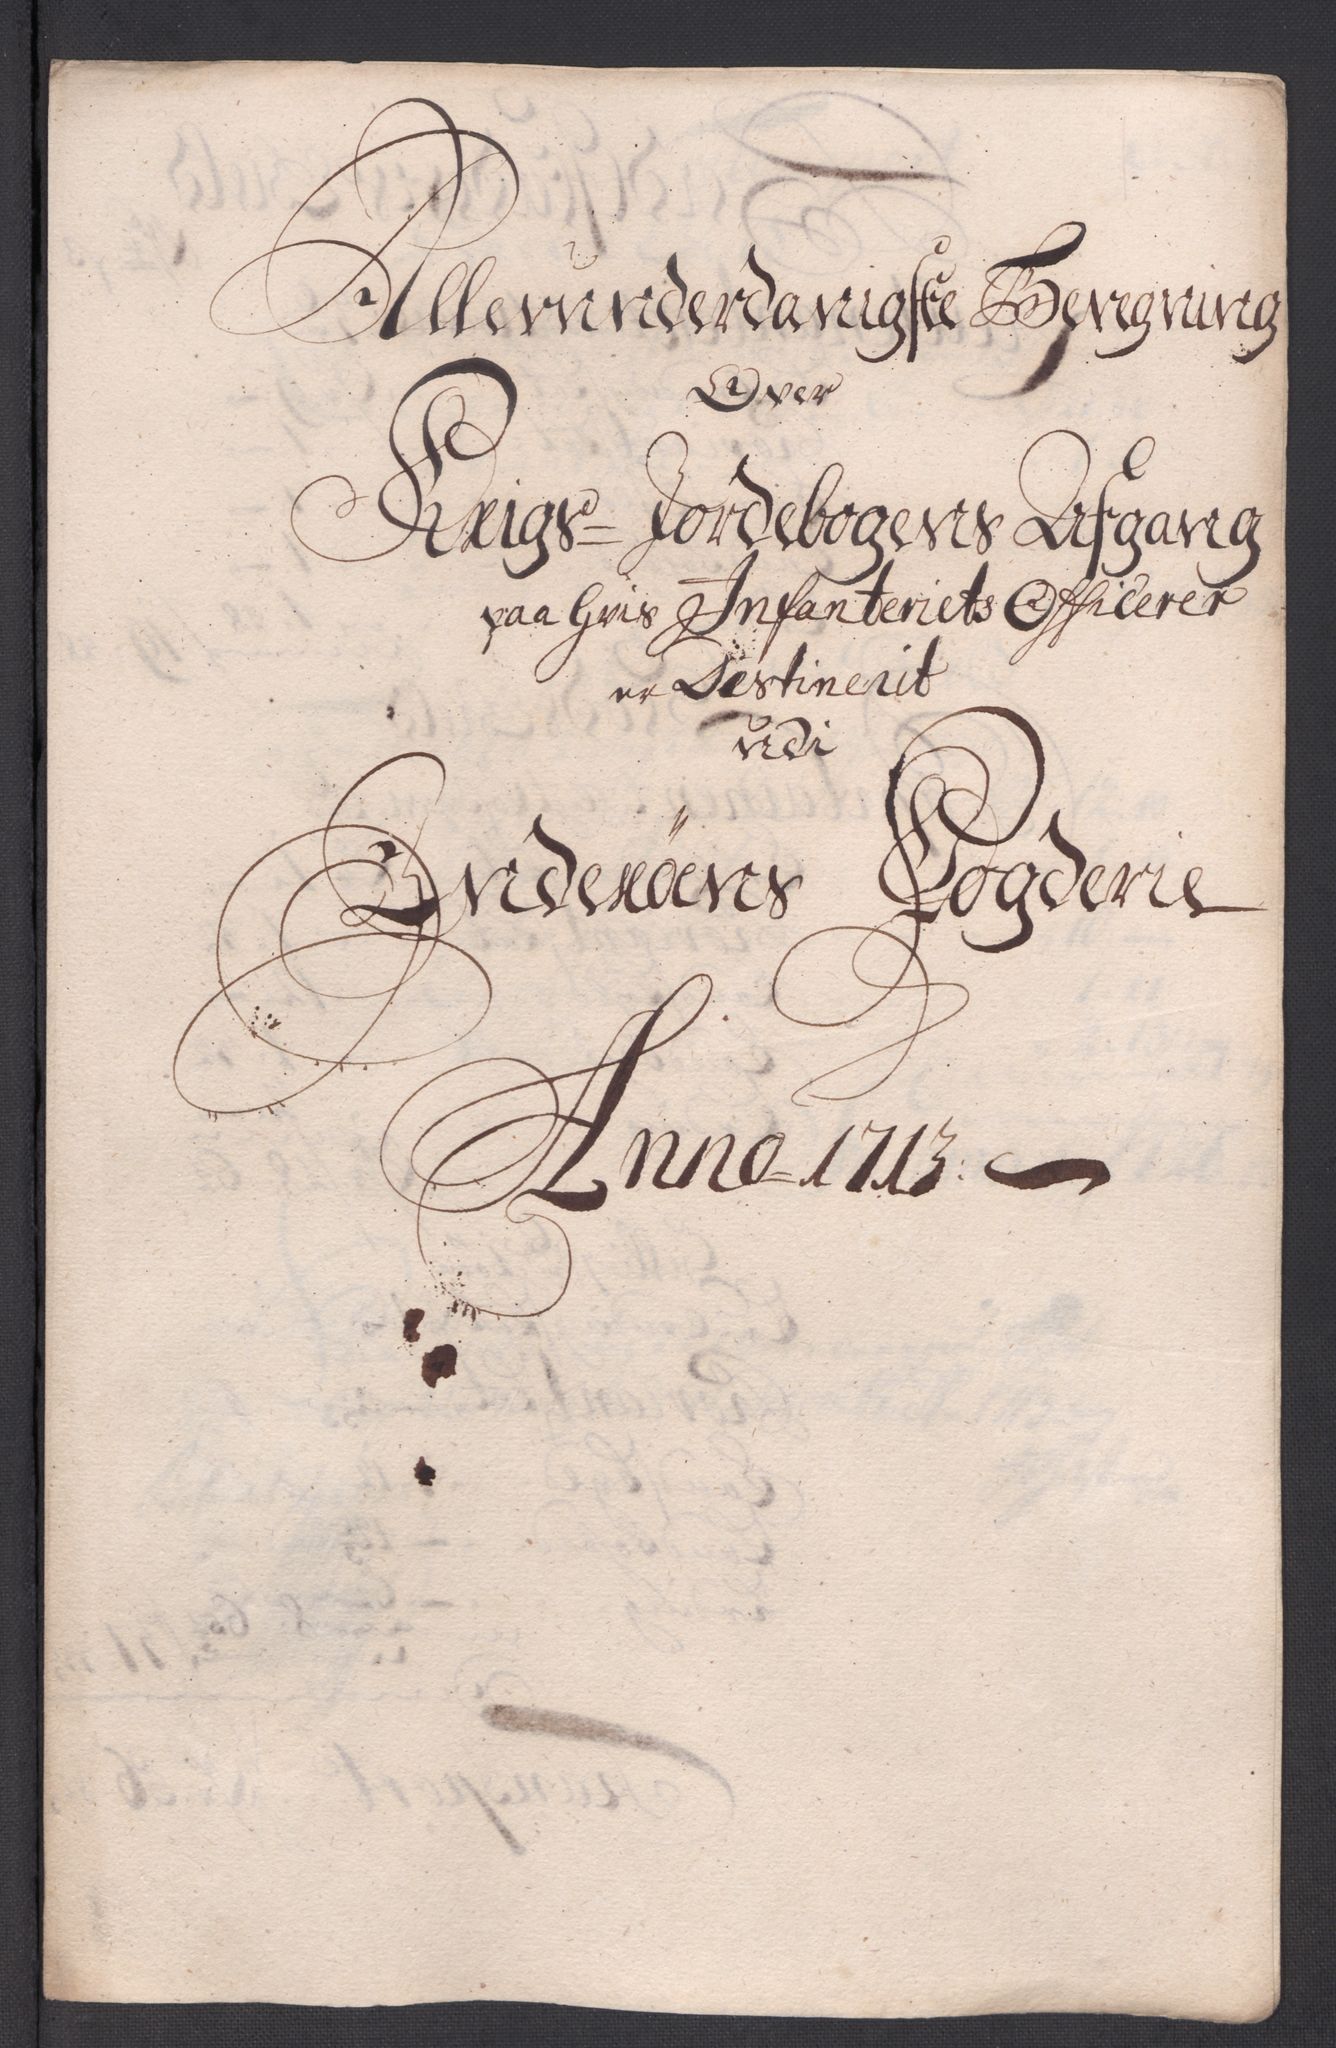 Allerunderdanigste Beregning
Over
Krigs= Jordebogens Afgang
paa hvis Infanteriets Officerer
er Destinerit
udi
Inderøens Fogderie
Anno= 1713: